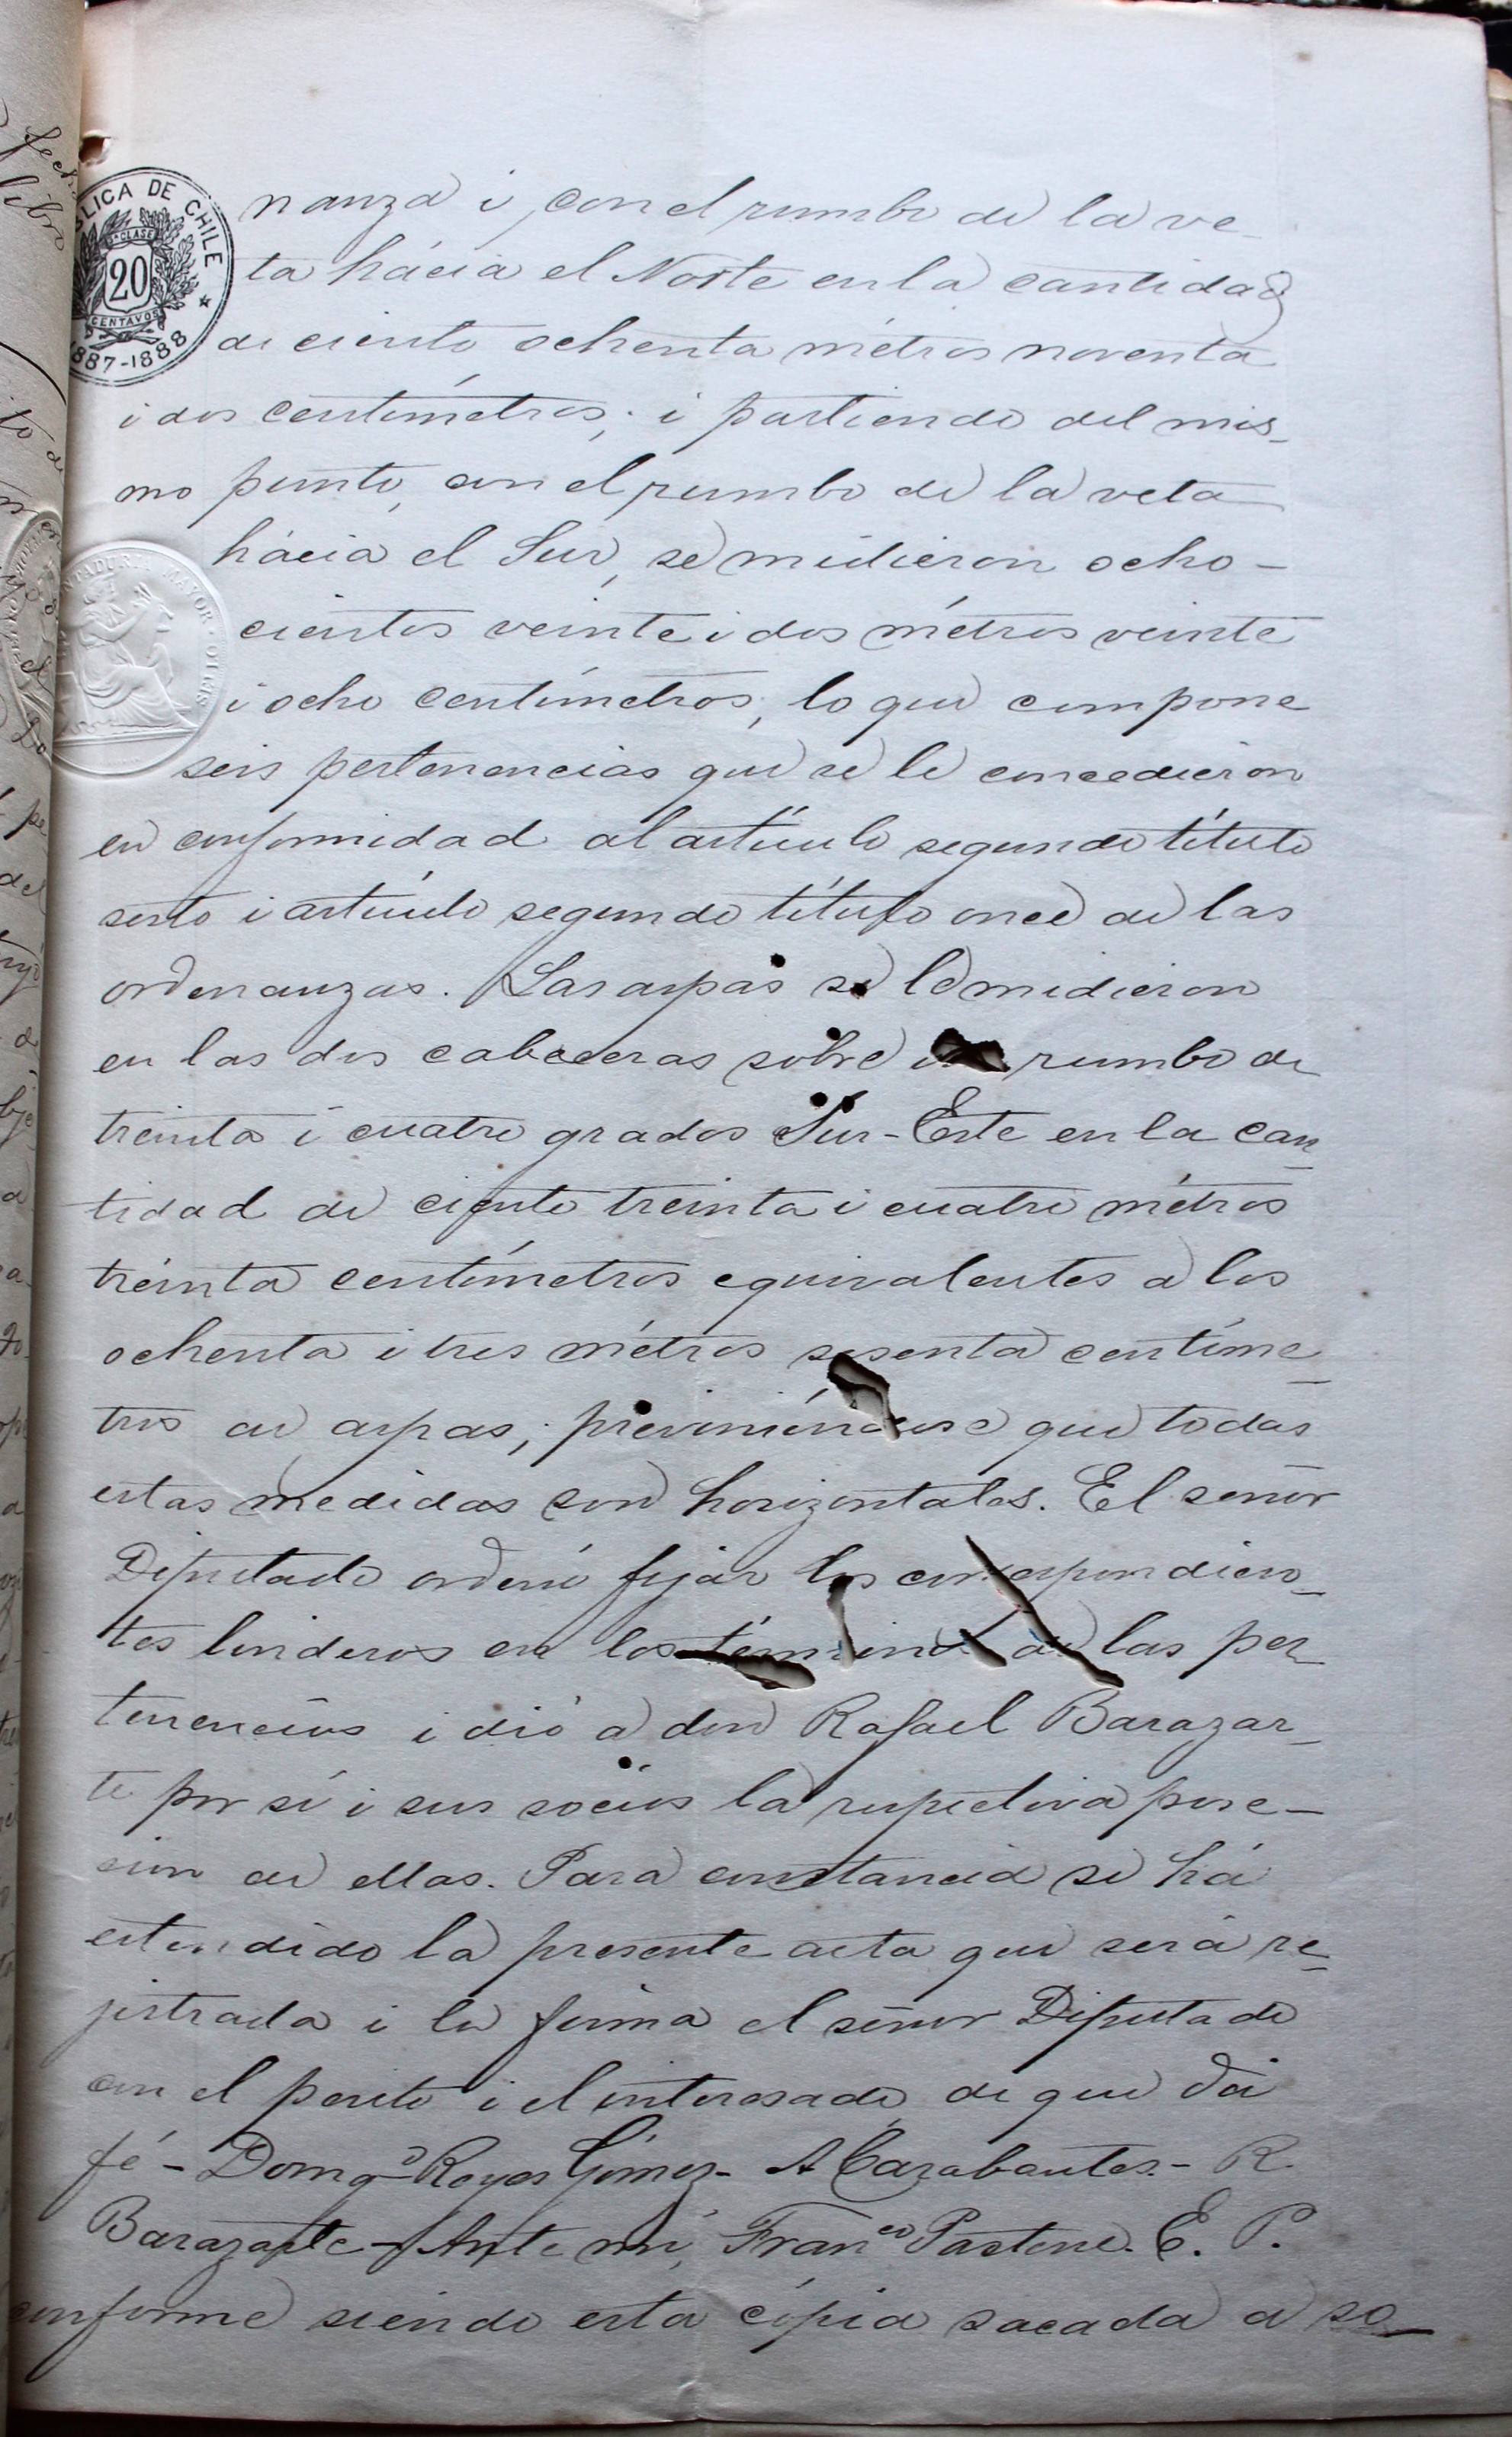 PUBLICA DE CHILE
1ª CLASE
20
CENTAVOS
1887-1888
nanza i, con el rumbo de la ve-
ta hácia el Norte en la cantidad
de ciento ochenta métros noventa
i dos centímetros; i partiendo del mis-
mo punto, con el rumbo de la veta
hácia el Sur, se midieron ocho-
cientos veinte i dos métros veinte
i ocho centímetros, lo que compone
seis pertenencias que se le concedieron
en conformidad al artículo segundo título
sesto i artículo segundo título once de las
ordenanzas. Las aspas se le midieron
en las dos cabeceras sobre rumbo de
treinta i cuatro grados Sur-Este en la can-
tidad de ciento treinta i cuatro métros
treinta centímetros equivalentes a los
ochenta i tres métros sesenta centíme-
tros de aspas; previniéndose que todas
estas medidas son horizontales. El señor
Diputado ordenó fijar los correspondien-
tes linderos en los términos de las per-
tenencias i dió a don Rafael Barazar-
te por sí i sus socios la respectiva pose-
sion de ellas. Para constancia se há
estendido la presente acta que será re-
jistrada i la firma el señor Diputado
con el perito i el interesado de que doi
fé - Domgº Reyes Gómez - A Carabantes. - R.
Barazarte - Ante mí, Franco Pastene. E. P.
conforme siendo esta cópia sacada a so-
CONTADURIA MAYOR